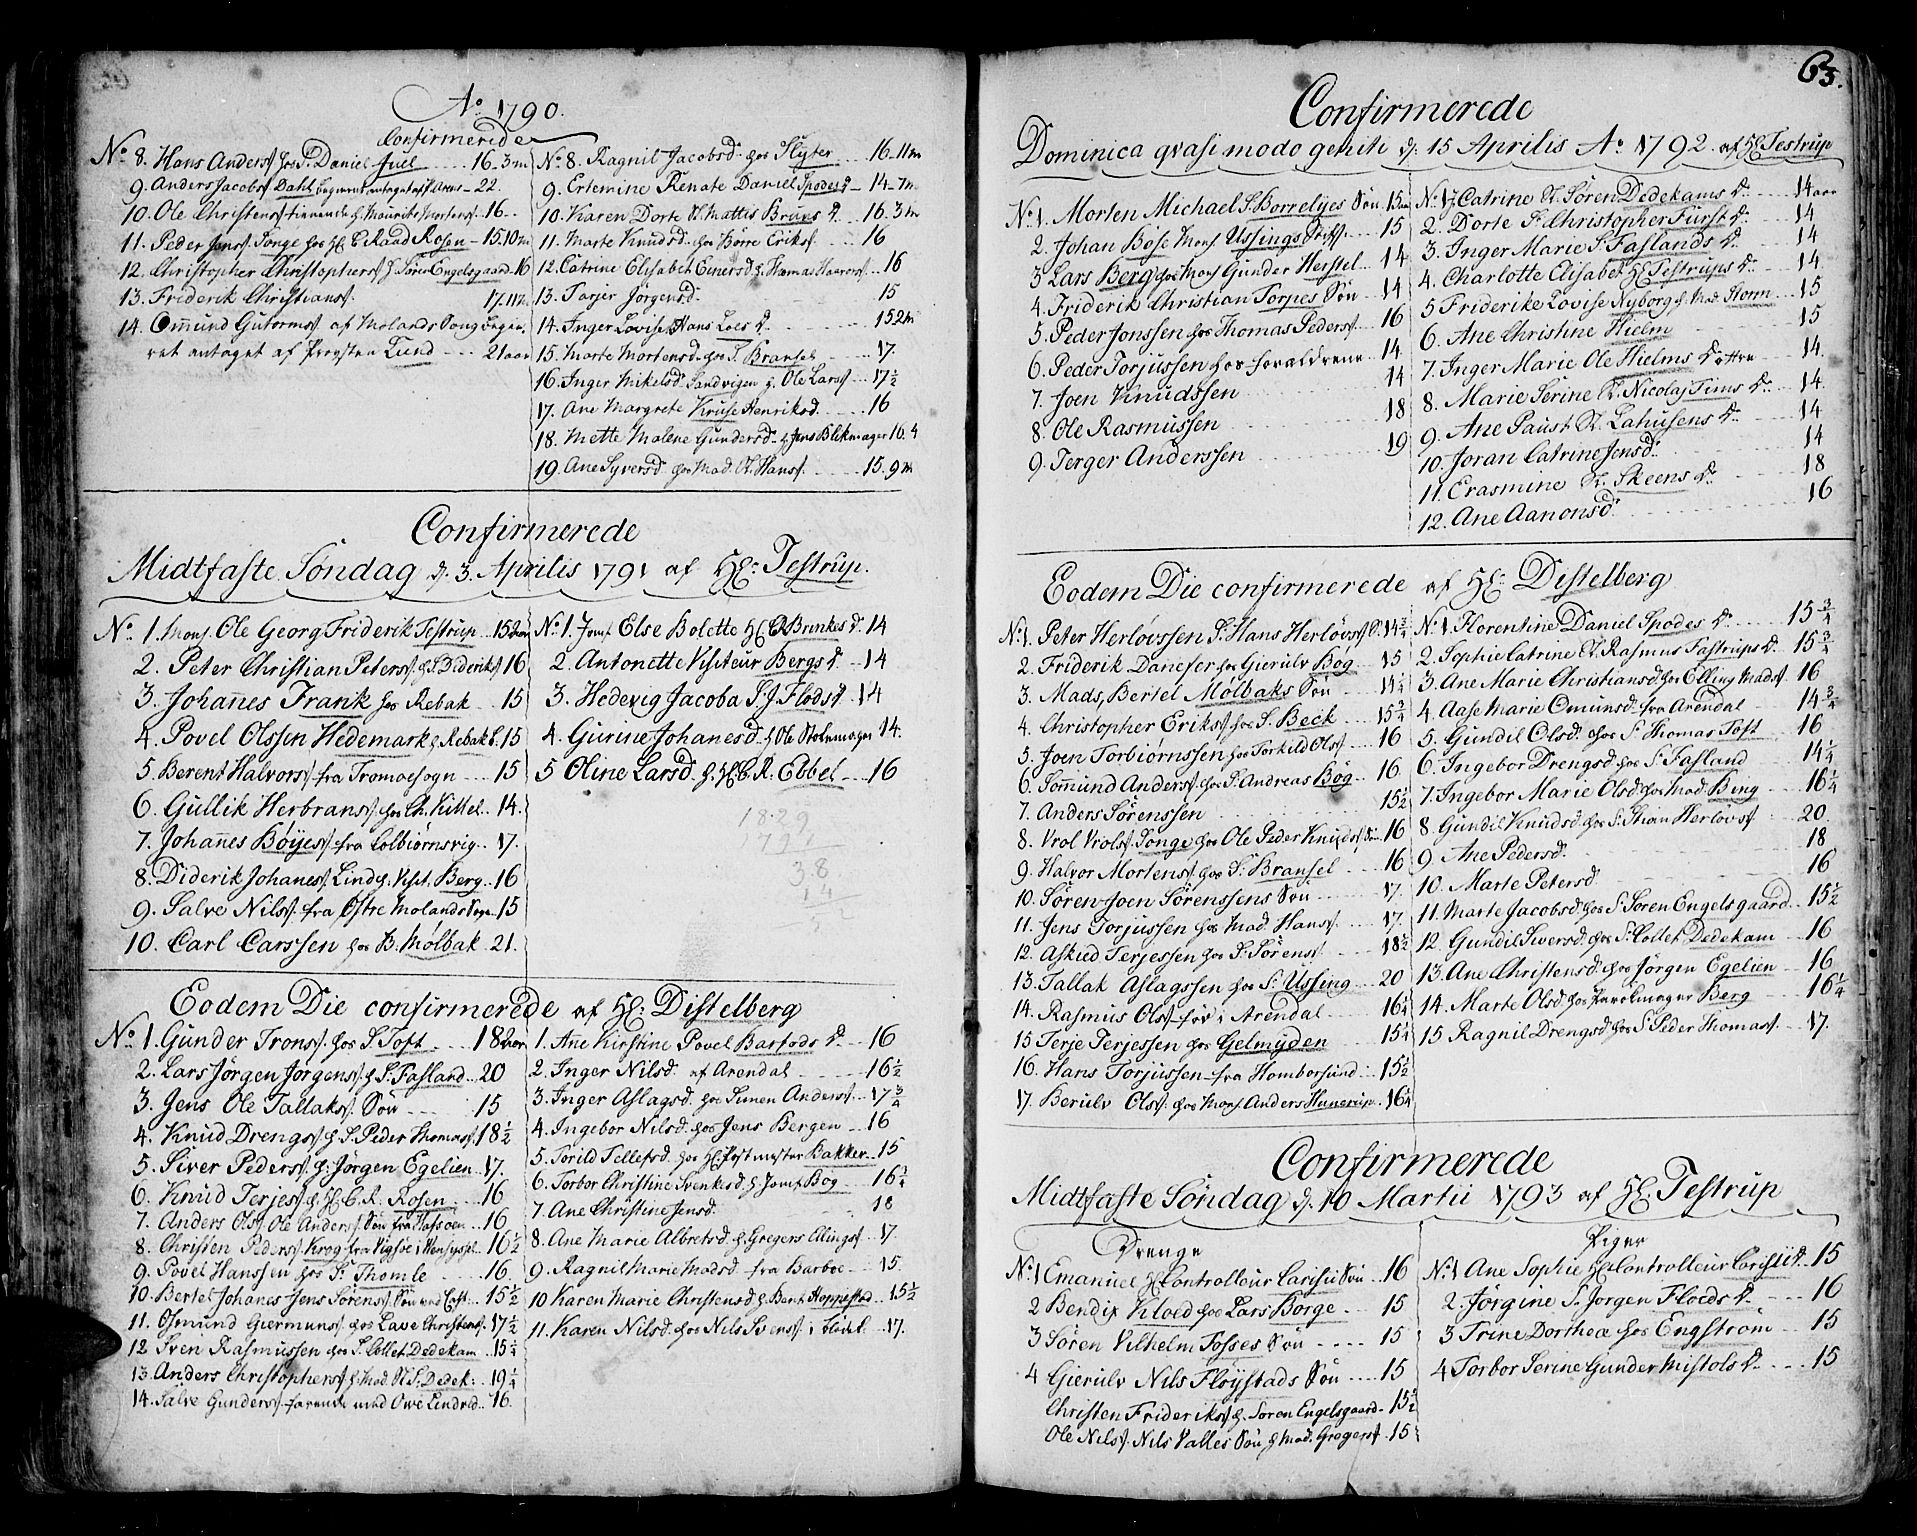 Ao 1790.
Confirmerede
No 8. Hans Anders. hos S. Daniel Juel 16-3m
9. Anders Jacobs. Dahl 22.
10. Ole Christens. Maurits Mortens. 16.
11. Peder Jans. Songe hos H. C. Raad Rosen 15.10m
12. Christopher Christophers. h. Sören Engelsgaard 16
13. Friderik Christians. 17.11m
14. Omund Gutorms. af Molands Sogn
ret antaget af Prousten Lund 21 aar
No 8. Ragnil Jacobsd. hos Slyter 16-11m
9. Ertemine Renate Daniel Spodes D. 14-7m
10. Karen Dorte Mattis Bruns D. 16.3m
11. Marte Knudsd. hos Börre Eriks. 16
12. Catrine Elisabet Einersd. h. Thomas Haavors. 16
13. Tarjer Jörgensd. 15
14. Inger Lovise Hans Loes D. 15 2m
15. Marte Mortensd. hos S. Bransel 17.
16. Inger Nikelsd. Sandvigen h. Ole Lars. 17½
17. Ane Margrete Kruse Henriksd. 16
18. Mette Malene Gundersd. h. Jens Blekmager 16.4
19. Ane Syversd. hos Mad. Hans. 15.9m
Confirmerede
Midtfaste Söndag d. 3. Aprilis 1791 af Hr: Testrup.
No 1. Mons. Ole Georg Friderik Testrup 15 aar
2. Peter Christian Peters. h. S. Dideriks. 16
3. Johannes Frank hos Rebak 15
4. Povel Olssen Hedemark h. Rebak 15
5. Berent Halvors. fra Tromoesogn 15
6. Gullik Herbrans. hos Ch. Kittel 14.
7. Johannes Böyes. fra Colbiörnsvig 17.
8. Diderik Johanes. Lind h. Visit. Berg 16
9. Salve Nils. fra Östre Molands Sogn 15
10. Carl Carssen hos B. Mölbak 21.
No 1. Jomf. Else Bolette H. C. R. Brinkes D. 14
2. Antonette Visiteur Bergs D. 14
3. Hedevig Jacoba S. J. Flods D. 14
4. Gurine Johanesd. h. Ole Stolemager 14.
5 Oline Larsd. h. H. C. R. Ebbel 16
1829
1791
38
14
52
Eodem Die confirmerede af Hr: Distelberg
No 1. Gunder Trons. hos S. Toft 18 aar
2. Lars Jörgen Jörgens. h. S. Fasland 20
3. Jens Ole Tallaks. Sön 15
4. Knud Drengs. h. S. Peder Thomas. 18½
5. Siver Peders. h. Jörgen Egelien 17.
6. Knud Terjes. h. H. C. R. Rosen 16
7. Anders Ols. Ole Anders. Sön fra Hafsoen 16
8. Christen Peders. Krog fra Vigsöe i Vensyssel 16½
9. Povel Hanssen hos S. Thomle 16.
10. Bertel Johanes Jens Sörens. Sön 15½
11. Osmund Giermuns. hos Lave Christens. 17½
12 Sven Rasmussen hos S. Collet Dedekam 15¼
13. Anders Christophers. h. Mad. S. Dedek: 19¼
14. Salve Gunders. farende med Owe Lindvld. 16.
1. Ane Kirstine Povel Barfods D. 16
2. Inger Nilsd. af Arendal 16½
3. Inger Aslagsd. hos Simen Anders. 17¾
4. Ingebor Nilsd. hos Jens Bergen 16
5. Torild Tellefsd. hos H. Postmester Bakker 15
6. Torbor Christine Svenkesd. h. Jomf. Bög 16¼
7. Ane Christine Jensd. 18
8. Ane Marie Albretsd. h. Gregers Ellings. 17.
9. Ragnil Marie Madsd. fra Barboe 15.
10 Karen Marie Christensd. h. Bent Hoppestad 15½
11. Karen Nilsd. hos Nils Svens. i Flödel 17.
63.
Confirmerede
Dominica qvasi modo geniti d: 15 Aprilis Ao 1792 af H. Testrup
No 1. Morten Michael S. Borrelyes Sön 15 aar
2. Johan Böse Mons. Ussings 15
3 Lars Berg hos Mons. Gunder Herstel 14
4. Friderik Christian Torpes Sön 14
5. Peder Jonssen hos Thomas Peders. 16
6. Peder Torjussen hos foraldrene 14
7. Joen Knudssen 14
8. Ole Rasmussen 18
9. Terger Anderssen 19
No 1. Catrine Sören Dedekams D. 14 aar
2. Dorte S. Christopher Fürst D. 14
3. Inger Marie S. Faslands D. 14
4. Charlotte Elisabet H. Testrups D. 14
5 Friderike Lovise Nyborg h. Mad. Storm 15
6. Ane Christine Hielm 15
7. Inger Marie Ole Hielms Dottre 14.
8. Marie Serine Nicolaj Tims D. 14.
9. Ane Paust Lahusens D. 14
10. Joran Catrine Jensd. 14
11. Erasmine Skeens D. 18
12. Ane Aanonsd. 16
Eodem Die confirmerede af Hr: Distelberg
No 1. Peter Herlövssen S. Hans Herlövs. S. 14¾
2. Friderik Danefer hos Gierulv Bög 15
3. Mads, Bertel Mölbaks Sön 14¼
4. Christopher Eriks. hos S. Beck 15¾
5. Joen Torbiörnssen hos Torkild Ols. 16
6. Somund Anders. hos S. Andreas Bög 16
7. Anders Sörenssen 15½
8. Vrol Vrols. Songe hos Ole Peder Knuds. Sön 16
9. Halvor Mortens. hos S. Bransel 16
10. Sören Joen Sörenssens Sön 17.
11. Jens Torjussen hos Mad. Hans. 17.
12. Askied Terjessen hos S. Sörens. 18½
13. Tallak Aslagssen hos S. Ussing 20
14. Rasmus Ols. för i Arendal 16¼
15 Terje Terjessen hos Gelmyden 15¼
16. Hans Torjussen fra Homborsund 15½
17. Berulv Ols. hos Mons. Anders Hunerup 16¼
No 1. Florentine Daniel Spodes D. 15¾
2. Sophie Catrine Rasmus Fastrups D. 15¾
3. Ane Marie Christiansd. hos Elling Mads. 16
4. Aase Marie Omunsd. fra Arendal 14¾
5. Gundil Olsd. hos S. Thomas Toft 16
6. Ingebor Drengsd. hos S. Fasland 14¼
7. Ingebor Marie Olsd. hos Mad. Bing 16¼
8. Gundil Knudsd. hos S. Herlövs. 20.
9. Ane Pedersd. 18
10. Marte Petersd. 16
11. Marte Jacobsd. hos S. Sören Engelsgaard 15½
12. Gundil Siversd. hos S. Collet Dedekam 16
13. Ane Christensd. hos Jörgen Egelien 16
14. Marte Olsd. hos Parokmager Berg 16¼
15 Ragnil Drengsd. hos S. Peder Thomas. 17.
Confirmerede
Midtfaste Söndag d. 10 Martii 1793 af H. Testrup
Drenge
No 1 Emanuel H. Controlleur Carisii Sön 16
2 Bendix Kloed hos Lars Borge 15
3 Sören Vilhelm Fosses Sön 15
4 Gierulv Nils Flöystads Sön 15
Christen Frideriks. h. Soren Engelsgaard 15½
Ole Nils. Nils Valles Sön h. Mad. Gregers. 15
Piger
No 1 Ane Sophie H. Controlleur Carisii D. 15
2. Jörgine S. Jorgen Floeds D. 16
3 Trine Dorthea hos Engström 15
4 Torbor Serine Gunder Mistols D. 15